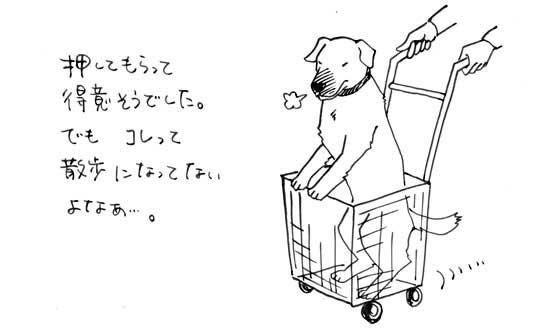 押してもらって
得意そうでした。
でも コレって
散歩になってない
よなぁ…。